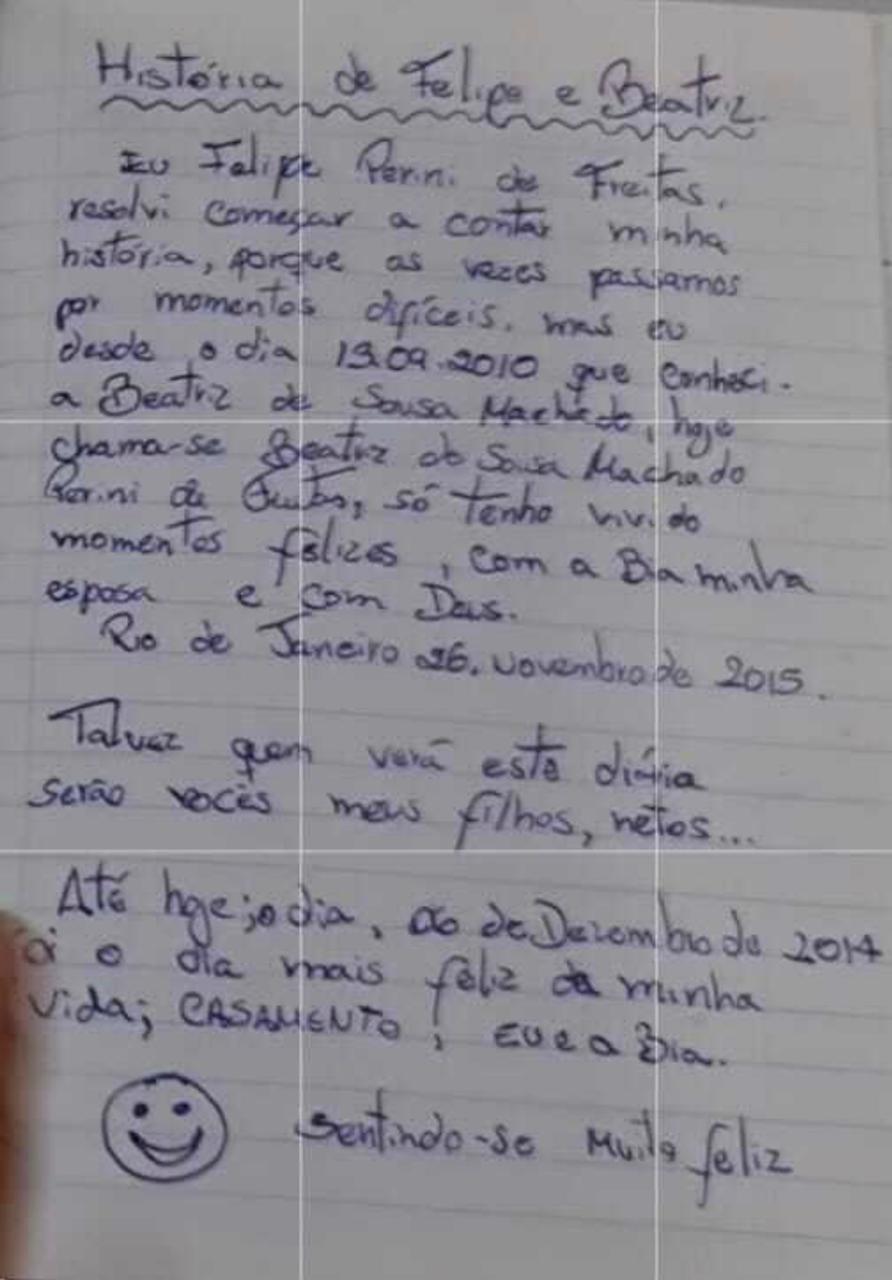 História de Felipe e Beatriz
Eu Felipe Perini de Freitas,
resolvi começar a contar minha
história, porque as vezes passamos
por momentos difíceis, mas eu
desde o dia 19.09.2010 que conheci
a Beatriz de Sousa Machado, hoje
chama-se Beatriz de Sousa Machado
Perini de Freitas, só tenho vivido
momentos felizes, com a Bia minha
esposa e com Deus.
Rio de Janeiro 26. novembro de 2015.
Talvez quem verá este diária
serão vocês meus filhos, netos...
Até hoje; o dia, 06 de Dezembro de 2014
o dia mais feliz da minha
vida; CASAMENTO; EU e a Bia.
Sentindo-se Muito feliz